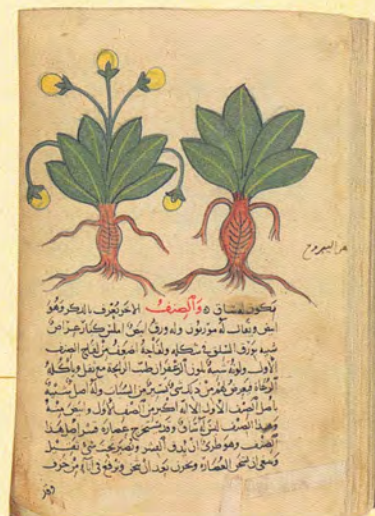 هو اليبروح
يكون له ساق ه والصنف الاخر يعرف بالذكر وهو
ابيض ويقال له موريون وله ورق ابيض املس كبار عراض
شبيه بورق السلق في شكله ولفاحه اضعف من لفاح الصنف
الاول ولونه شبيه بلون الزعفران طيب الرايحة مع ثقل وياكله
الرعاة فيعرض لهم من ذلك شي يسير من السبات وله اصل شبيه
باصل الصنف الاول الا انه اكبر من الصنف الاول وابيض منه
وهذا الصنف ليس له ساق وقد يستخرج عصاره قشر اصل هذا
الصنف وهو طري ان يدق القشر ويصير تحت شي ثقيل